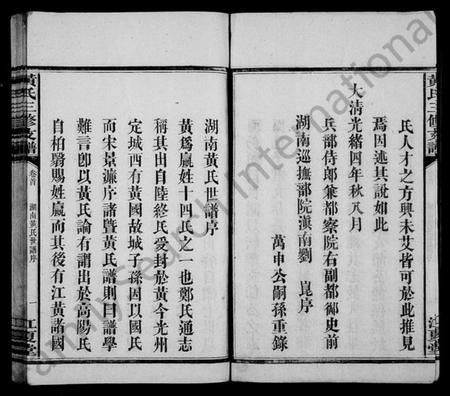 氏人才之方興未艾皆可於此推見
焉因述其說如此
大清光緒四年秋八月
兵部侍郎兼都察院右副都御史前
湖南巡撫部院滇南劉 崑序
萬申公嗣孫重錄
黃氏三修支譜
江夏堂
湖南黃氏世譜序
黃為嬴姓十四氏之一也鄭氏通志
稱其出自陸終氏受封於黃今光州
定城西有黃國故城子孫因以國氏
而宋景濂序諸暨黃氏譜則曰譜學
難言卽以黃氏論有謂出於高陽氏
自柏翳賜姓嬴而其後有江黃諸國
黃氏三修支譜
卷首
湖南黃氏世譜序
一
江夏堂
FamilySearch International